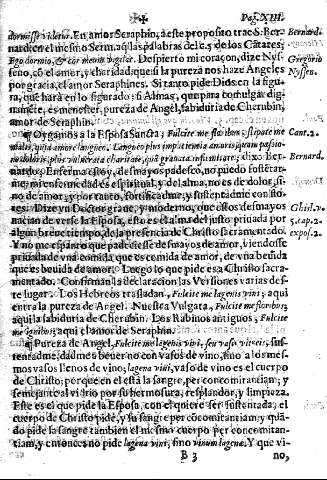 ✠ Pag. XIII.
dormisse videtur. En amor Seraphin, a este proposito trae S. Ber-
nardo en el mesmo Serm. aquellas palabras del c. 5. de los Cãtares;
Ego dormio, & cor meum vigilat. Despierto mi coraçon, dize Nys-
seno, cõ el amor, y charidad, que si la pureza nos haze Angeles
por gracia, el amor Seraphines. Si tanto pide Dios en la figu-
ra, que harà en lo figurado; ò Almas, que para comulgar dig-
namẽte, es menester, pureza de Angel, sabiduria de Cherubin,
amor de Seraphin.
¶ Oygamos a la Esposa Sancta; Fulcite me floribus, stipate me
malis, quia amore langueo. Langueo plus impatientia amoris quam passio-
nis doloris, plus vulnerata charitate, quã grauata infirmitate; dixo Ber-
nardo. Enferma estoy, desmayos padesco, no puedo sostener-
me, mi enfermedad es espiritual, y del alma, no es de dolor, si-
no de amor, y por tanto, fortificadme, y sustentadme con flo-
res. Dize vn Doctor graue, y moderno, que estos desmayos
nacian de verse la Esposa, esto es el alma del justo, priuada por
algun breue tiempo, de la presencia de Christo Sacramentado.
Y no me espanto que padeciesse desmayos de amor, viendose
priuada de vna comida que es comida de amor, de vna beuida
que es beuida de amor. Luego lo que pide es a Christo sacra-
mentado. Confirman la declaracion las Versiones varias des-
te lugar. Los Hebreos trasladan, Fulcite me lagenis vini; aqui
entra la pureza de Angel. Nuestra Vulgata, Fulcite me floribus;
aqui la sabiduria de Cherubin. Los Rabinos antiguos, Fulcite
me ignibus; aqui el amor de Seraphin.
¶ Pureza de Angel, Fulcite me lagenis vini, seu vasis vitreis, sus-
tentadme, dadme a beuer no con vasos de vino, sino a los mes-
mos vasos llenos de vino; lagena vini, vaso de vino es el cuerpo
de Christo; porque en el està la sangre, per concomitantiam; y
semejante al vidrio por su hermosura, resplandor, y limpieza.
Este es el que pide la Esposa, con el quiere ser sustentada, el
cuerpo de Christo pide, y su sangre per concomitantiam; y quã-
do pide la sangre tambien el mesmo cuerpo per concomitan-
tiam, y entonces no pide lagena vini, sino vinum lagenæ. Y que vi-
B 3 no,
Bernard.
Gregorio
Nyssen.
Cant. 2.
Bernard.
Ghisl. v.
5. cap. 2.
expos. 2.